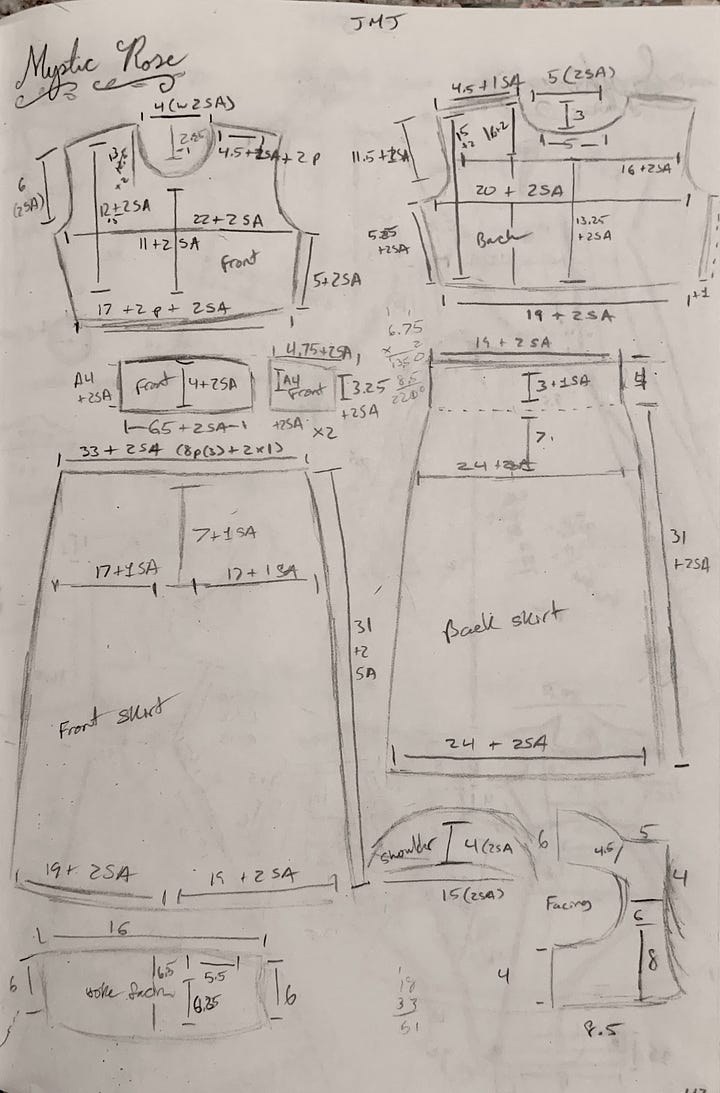 JMJ
Mystic Rose
4 (w 2SA)
4.5 + 1SA
5 (2SA)
3
5
6
(2SA)
4.5 + 2SA + 2p
12 + 2SA
22 + 2SA
11 + 2SA
Front
5 + 2SA
17 + 2p + 2SA
15
x2
16 x2
16 + 2SA
20 + 2SA
Back
13.25
+ 2SA
+2SA
+1
19 + 2SA
A4
+2SA
Front
4 + 2SA
6.5 + 2SA
4.75 + 2SA
A4
Front
3.25
+2SA
+2SA
x2
6.75
x 2
19 + 2SA
3 + 1SA
7
31
+2SA
Back skirt
24 + 2SA
33 + 2SA (8p(3) + 2x1)
7 + 1SA
17 + 1SA
17 + 1SA
31
+2
SA
Front skirt
19 + 2SA
19 + 2SA
Shoulder
4 (2SA
15 (2SA)
6
5
4.5
4
Facing
6
8
4
8.5
16
6
6.5
5.5
6.25
6
18
33
51